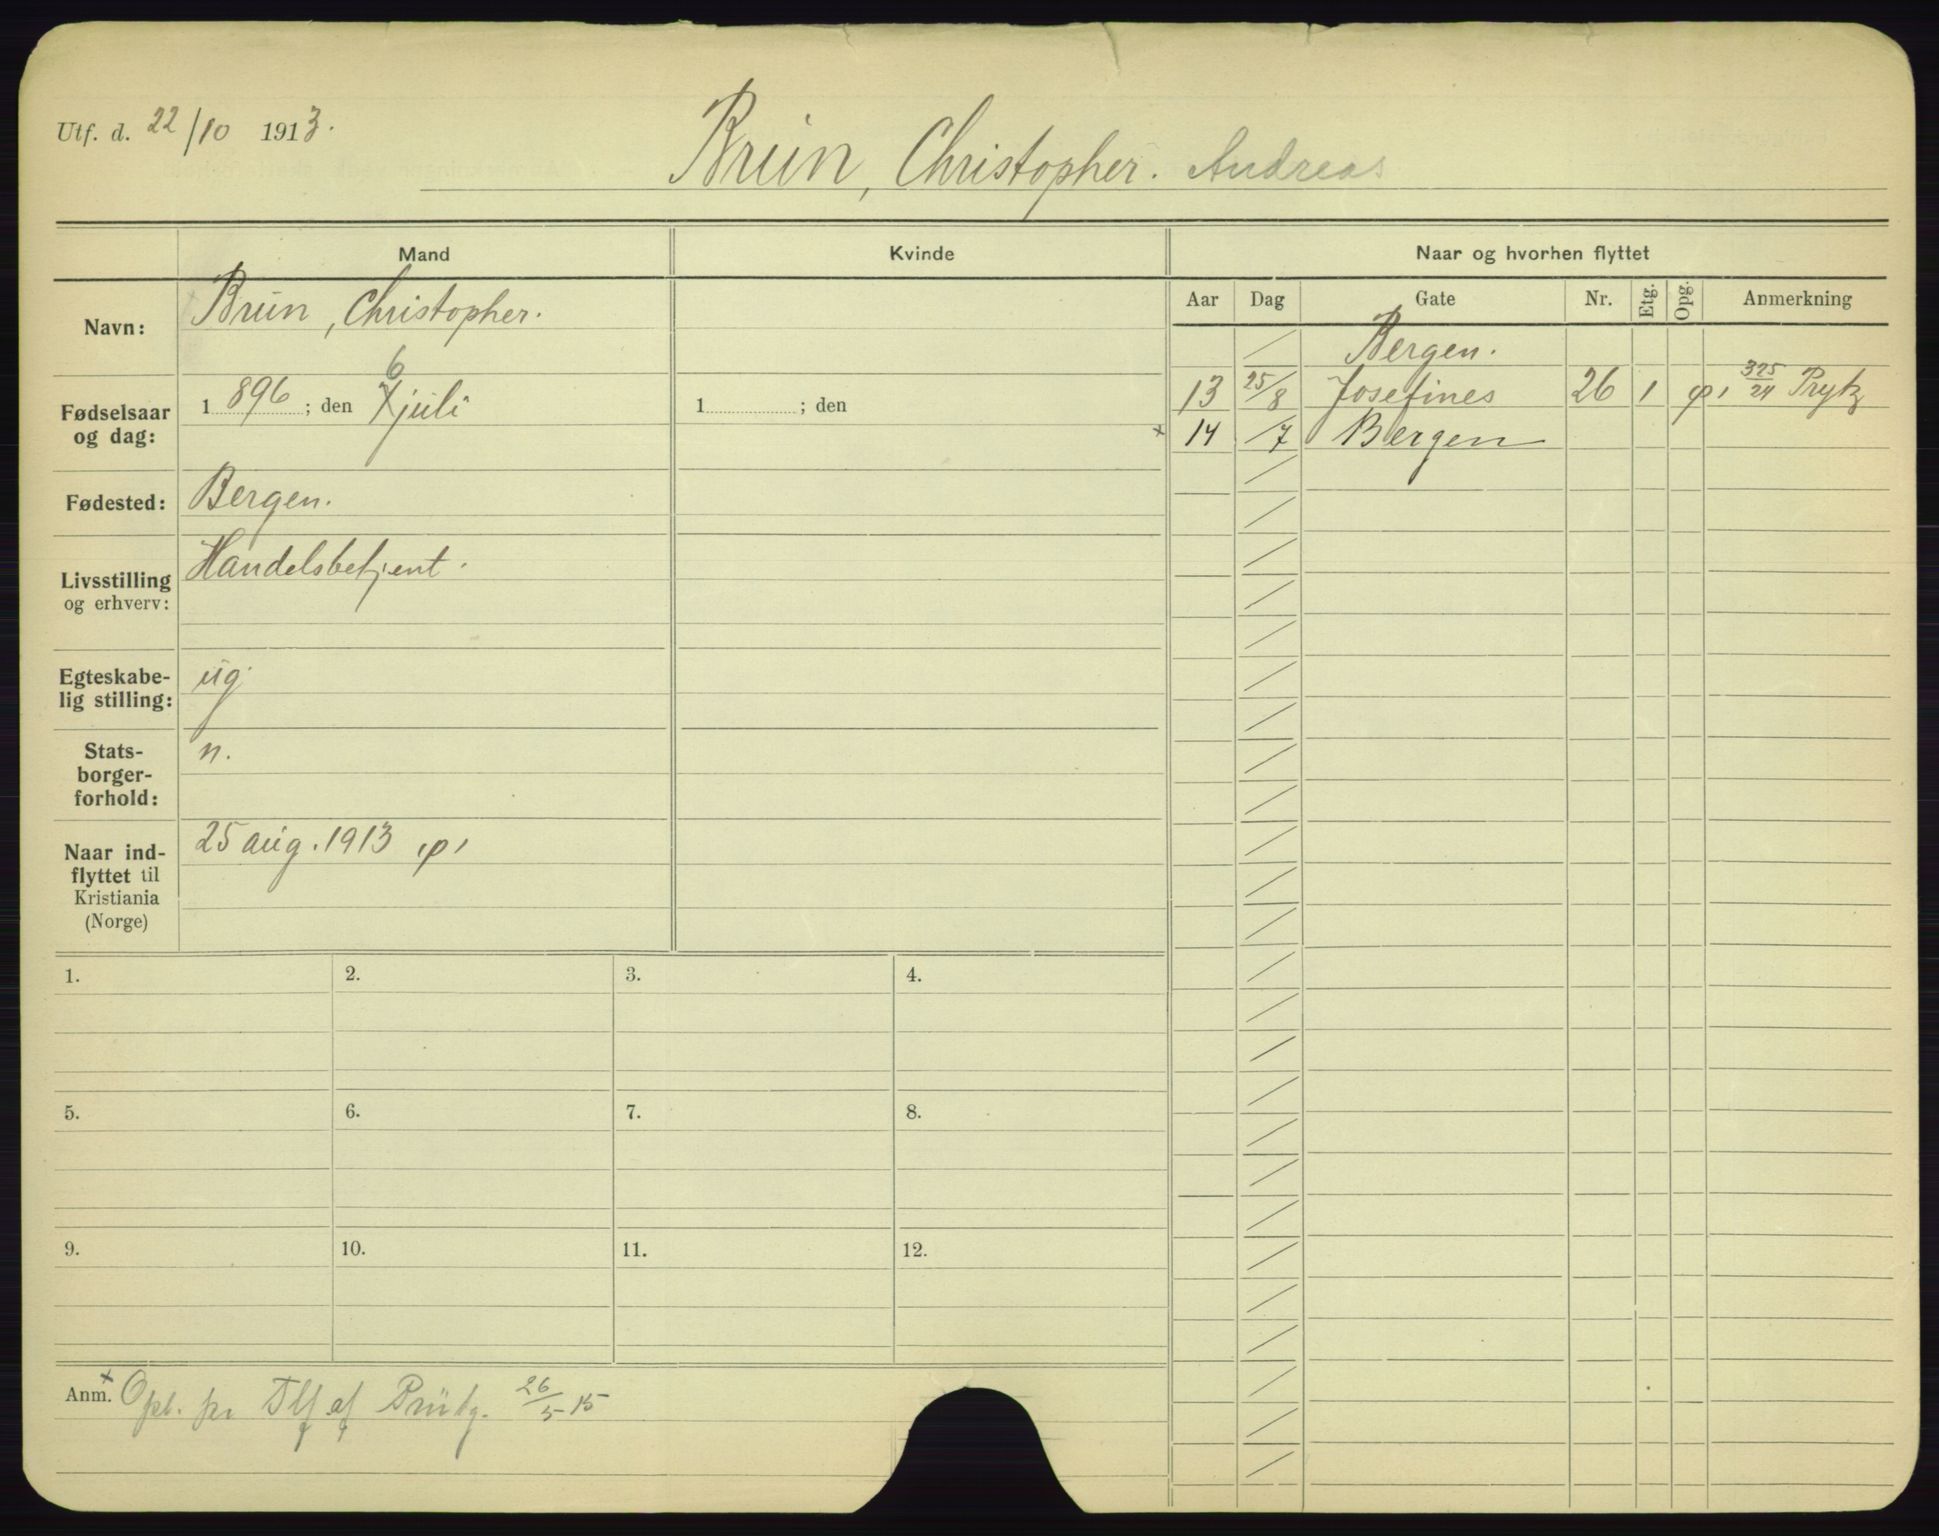 Utf. d. 22/10 1913.
Brun, Christopher. Andreas
Mand
Kvinde
Naar og hvorhen flyttet
Aar Dag Gate Nr. Etg. Opg. Anmerkning
Navn: Brun, Christopher.
Bergen.
13 25/8 Josefines 26 1 325/24
x 14 /7 Bergen
Fødselsaar og dag: 1896; den 6 7 juli
1 ; den
Fødested: Bergen.
Livsstilling og erhverv: Handelsbetjent.
Egteskabe-
lig stilling: ug.
Stats-
borger-
forhold: n.
Naar ind-
flyttet til
Kristiania
(Norge) 25 aug. 1913
1. 2. 3. 4.
5. 6. 7. 8.
9. 10. 11. 12.
Anm. x Opl. pr Tlf af 26/5 15